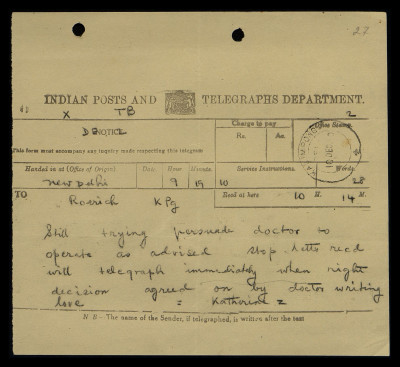 27
INDIAN POSTS AND TELEGRAPHS DEPARTMENT.
X TB 2
NOTICE
Charge to pay
Office Stamp.
Rs. As.
This form must accompany any inquiry made respecting this telegram
Handed in at (Office of Origin). Date Hour Minute Service Instructions. Words
New Delhi 9 19 10 28
TO
Roerich KPg
Recd at here 10 H. 14 M.
Still trying persuade doctor to
operate as advised stop letts recd
will telegraph immediately when right
decision agreed on by doctor writing
love = Katherine =
N B—The name of the Sender, if telegraphed, is written after the text